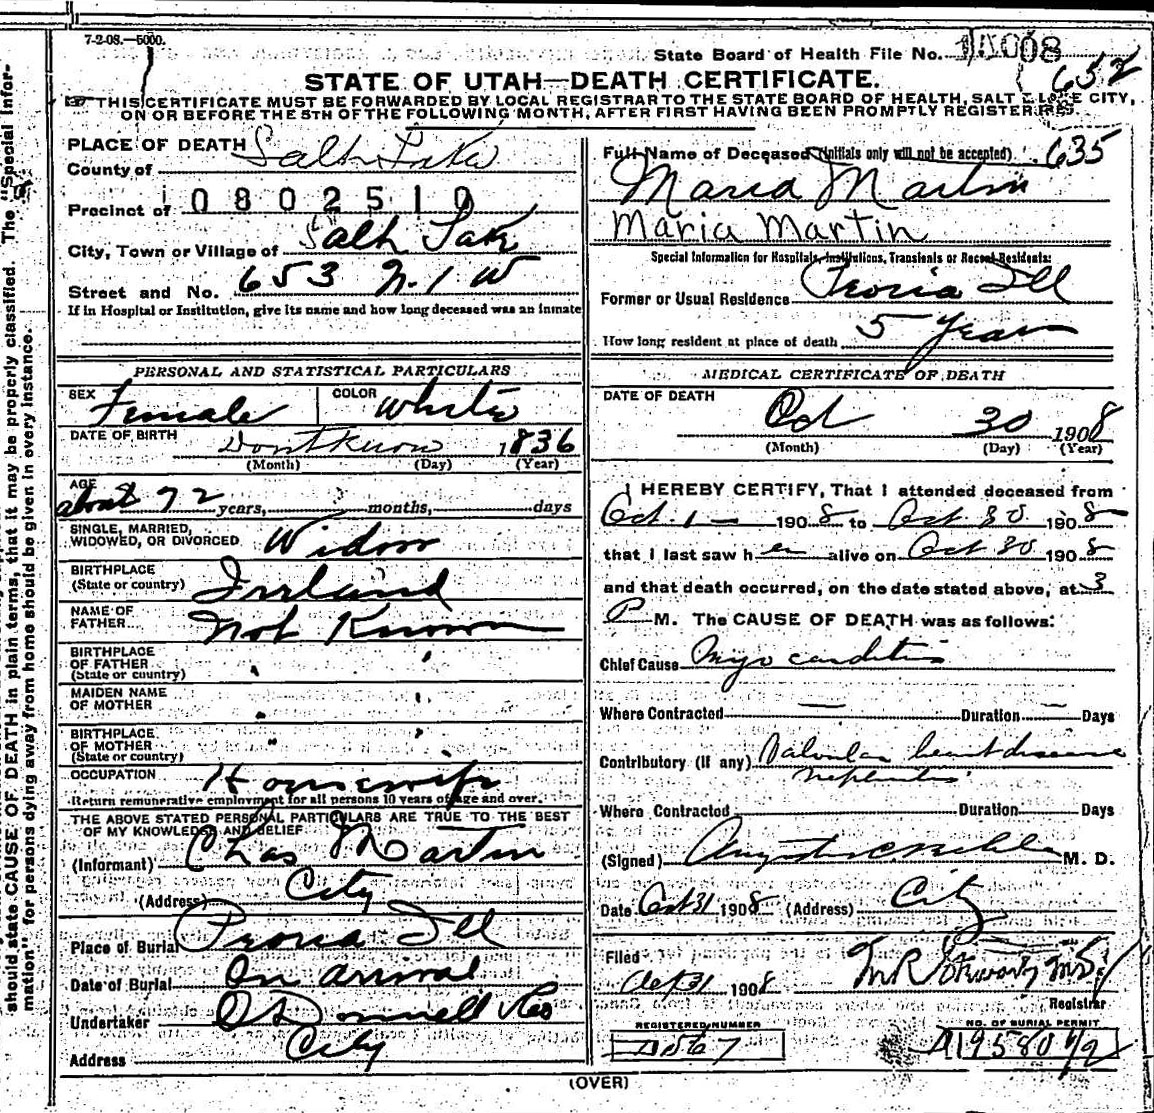 7-2-08.—5000.
State Board of Health File No.
652
STATE OF UTAH—DEATH CERTIFICATE.
THIS CERTIFICATE MUST BE FORWARDED BY LOCAL REGISTRAR TO THE STATE BOARD OF HEALTH, SALT LAKE CITY,
ON OR BEFORE THE 5TH OF THE FOLLOWING MONTH, AFTER FIRST HAVING BEEN PROMPTLY REGISTERED.
should state CAUSE OF DEATH in plain terms, that it may be properly classified. The "Special Infor-
mation" for persons dying away from home should be given in every instance.
PLACE OF DEATH
County of Salt Lake
Precinct of 0802510
City, Town or Village of Salt Lake
Street and No. 653 N. 1 W
If in Hospital or Institution, give its name and how long deceased was an inmate
PERSONAL AND STATISTICAL PARTICULARS
SEX Female COLOR White
DATE OF BIRTH Dont Know 1836
(Month) (Day) (Year)
AGE about 72 years, months, days
SINGLE, MARRIED,
WIDOWED, OR DIVORCED Widow
BIRTHPLACE
(State or country) Irland
NAME OF
FATHER Not Known
BIRTHPLACE
OF FATHER " "
(State or country)
MAIDEN NAME
OF MOTHER " "
BIRTHPLACE
OF MOTHER " "
(State or country)
OCCUPATION Housewife
Return remunerative employment for all persons 10 years of age and over.
THE ABOVE STATED PERSONAL PARTICULARS ARE TRUE TO THE BEST
OF MY KNOWLEDGE AND BELIEF
(Informant) Chas Martin
(Address) City
Place of Burial Peoria Ill
Date of Burial On arrival
Undertaker O'Donnell &
Address City
Full Name of Deceased (Initials only will not be accepted) 635
Maria Martin
Maria Martin
Special Information for Hospitals, Institutions, Transients or Recent Residents:
Former or Usual Residence Peoria Ill
How long resident at place of death 5 Years
MEDICAL CERTIFICATE OF DEATH
DATE OF DEATH
Oct 30 1908
(Month) (Day) (Year)
I HEREBY CERTIFY, That I attended deceased from
Oct. 1 — 1908 to Oct. 30 1908
that I last saw her alive on Oct 30 1908
and that death occurred, on the date stated above, at 3
P M. The CAUSE OF DEATH was as follows:
Chief Cause Myo carditis
Where Contracted — Duration — Days
Contributory (if any) Valvular heart disease
nephritis
Where Contracted Duration Days
(Signed) M. D.
Date Oct 31 1908 (Address) City
Filed
Oct 31 1908
Registrar
REGISTERED NUMBER NO. OF BURIAL PERMIT
(OVER)